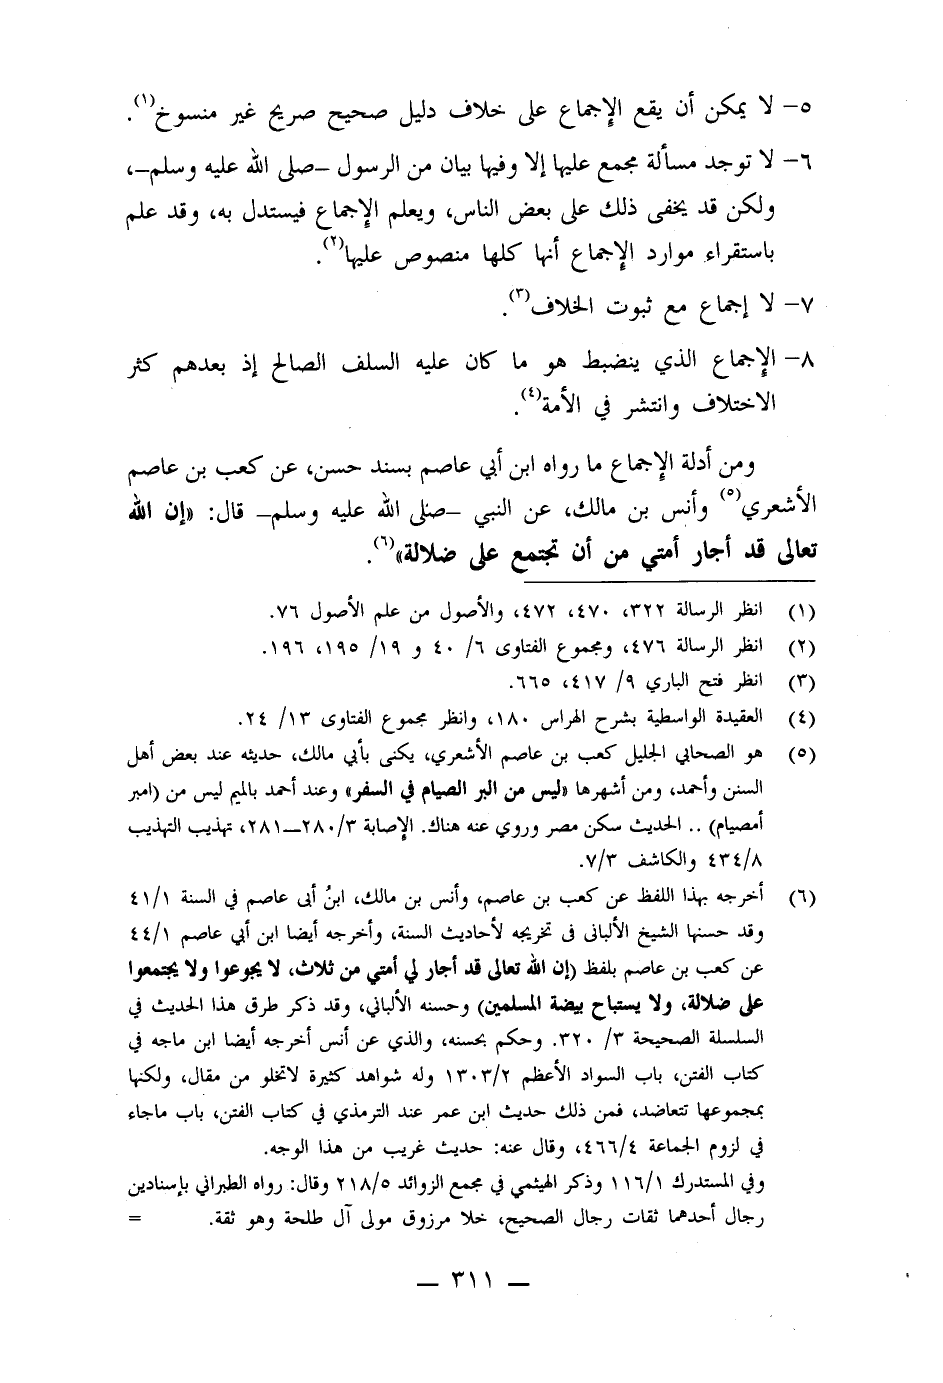 ٥- لا يمكن أن يقع الإجماع على خلاف دليل صحيح صريح غير منسوخ(١).
٦- لا توجد مسألة مجمع عليها إلا وفيها بيان من الرسول -صلى الله عليه وسلم-،
ولكن قد يخفى ذلك على بعض الناس، ويعلم الإجماع فيستدل به، وقد علم
باستقراء موارد الإجماع أنها كلها منصوص عليها(٢).
٧- لا إجماع مع ثبوت الخلاف(٣).
٨- الإجماع الذي ينضبط هو ما كان عليه السلف الصالح إذ بعدهم كثر
الاختلاف وانتشر في الأمة(٤).
ومن أدلة الإجماع ما رواه ابن أبي عاصم بسند حسن، عن كعب بن عاصم
الأشعري(٥) وأنس بن مالك، عن النبي -صلى الله عليه وسلم- قال: «إن الله
تعالى قد أجار أمتي من أن تجتمع على ضلالة»(٦).
(١) انظر الرسالة ٣٢٢، ٤٧٠، ٤٧٢، والأصول من علم الأصول ٧٦.
(٢) انظر الرسالة ٤٧٦، ومجموع الفتاوى ٦/ ٤٠ و ١٩/ ١٩٥، ١٩٦.
(٣) انظر فتح الباري ٩/ ٤١٧، ٦٦٥.
(٤) العقيدة الواسطية بشرح الهراس ١٨٠، وانظر مجموع الفتاوى ١٣/ ٢٤.
(٥) هو الصحابي الجليل كعب بن عاصم الأشعري، يكنى بأبي مالك، حديثه عند بعض أهل
السنن وأحمد، ومن أشهرها «ليس من البر الصيام في السفر» وعند أحمد بالميم ليس من (امبر
أمصيام) .. الحديث سكن مصر وروي عنه هناك. الإصابة ٢٨٠/٣ــ٢٨١، تهذيب التهذيب
٤٣٤/٨ والكاشف ٧/٣.
(٦) أخرجه بهذا اللفظ عن كعب بن عاصم، وأنس بن مالك، ابنُ أبى عاصم في السنة ٤١/١
وقد حسنها الشيخ الألبانى فى تخريجه لأحاديث السنة، وأخرجه أيضا ابن أبي عاصم ٤٤/١
عن كعب بن عاصم بلفظ (إن الله تعالى قد أجار لي أمتي من ثلاث، لا يجوعوا ولا يجتمعوا
على ضلالة، ولا يستباح بيضة المسلمين) وحسنه الألباني، وقد ذكر طرق هذا الحديث في
السلسلة الصحيحة ٣/ ٣٢٠. وحكم بحسنه، والذي عن أنس أخرجه أيضا ابن ماجه في
كتاب الفتن، باب السواد الأعظم ١٣٠٣/٢ وله شواهد كثيرة لاتخلو من مقال، ولكنها
بمجموعها تتعاضد، فمن ذلك حديث ابن عمر عند الترمذي في كتاب الفتن، باب ماجاء
في لزوم الجماعة ٤٦٦/٤، وقال عنه: حديث غريب من هذا الوجه.
وفي المستدرك ١١٦/١ وذكر الهيثمي في مجمع الزوائد ٢١٨/٥ وقال: رواه الطبراني بإسنادين
رجال أحدهما ثقات رجال الصحيح، خلا مرزوق مولى آل طلحة وهو ثقة. =
— ٣١١ —